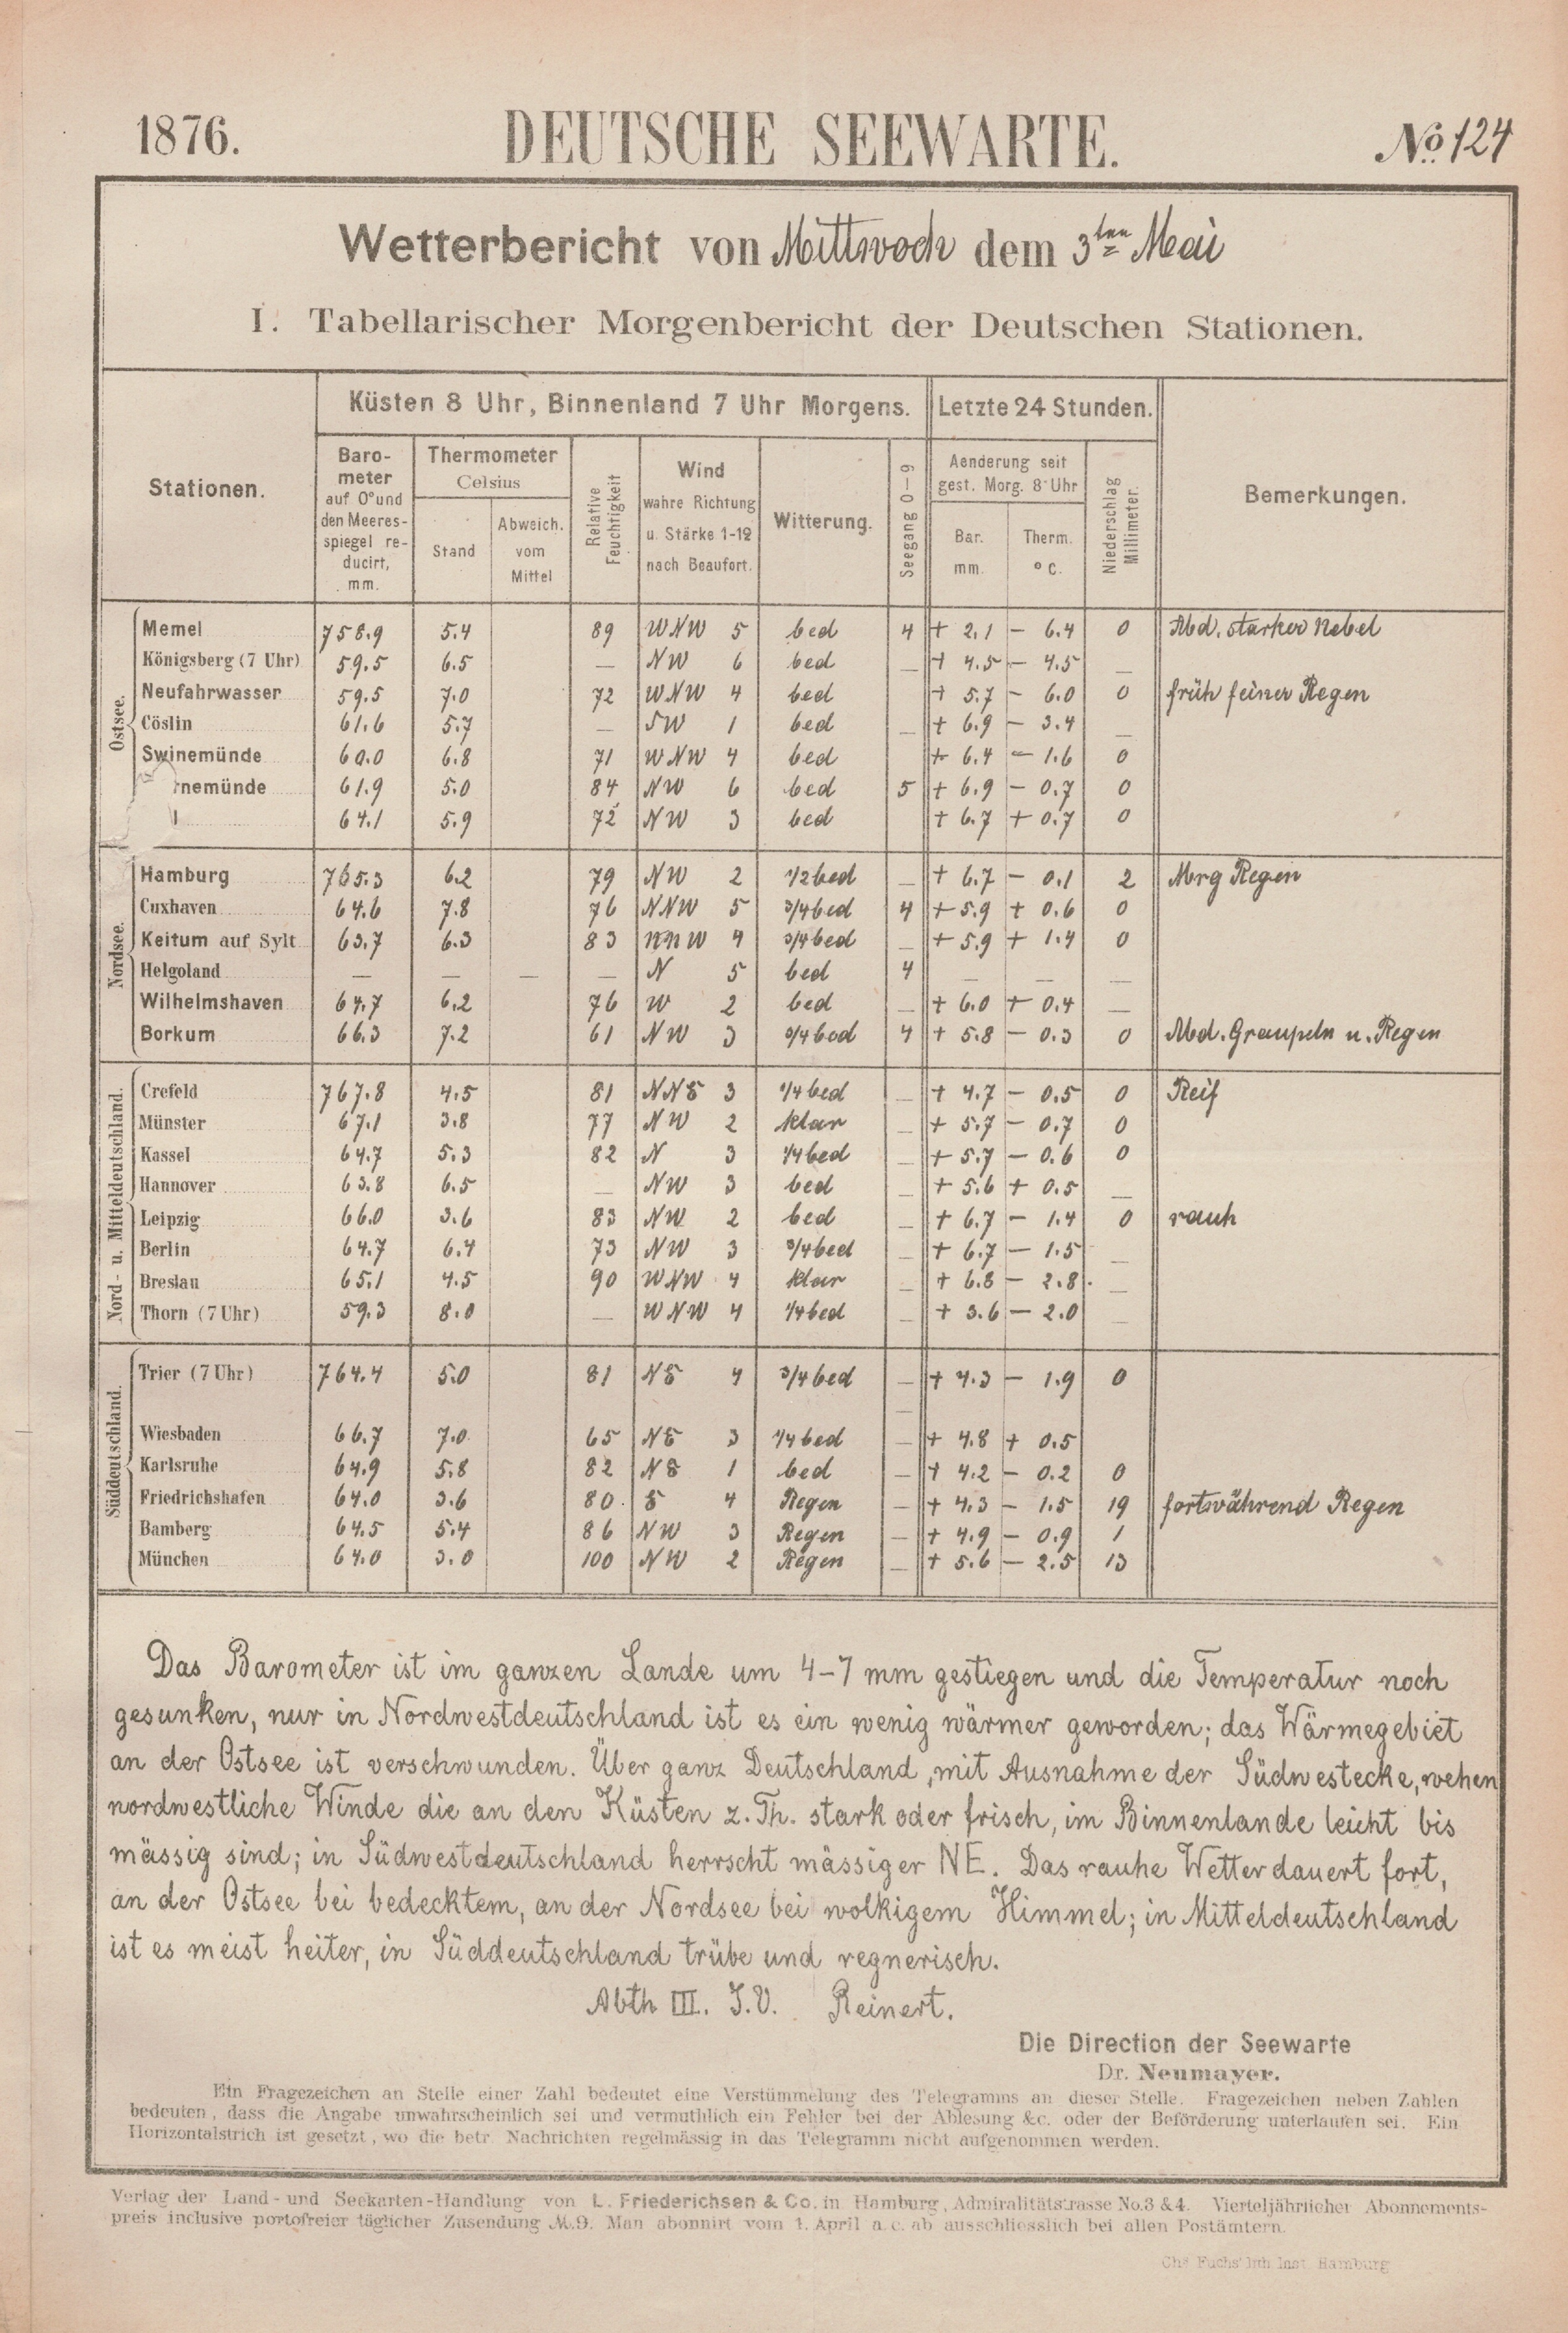 1876. DEUTSCHE SEEWARTE. No. 124
Wetterbericht von Mittwoch dem 3ten Mai
I. Tabellarischer Morgenbericht der Deutschen Stationen.
Küsten 8 Uhr, Binnenland 7 Uhr Morgens. Letzte 24 Stunden.
Stationen.
Barometer auf 0° und den Meeresspiegel reducirt, mm.
Thermometer Celsius
Stand
Abweich. vom Mittel
Relative Feuchtigkeit
Wind wahre Richtung u. Stärke 1-12 nach Beaufort.
Witterung.
Seegang 0-9
Aenderung seit gest. Morg. 8 Uhr
Bar. mm.
Therm. °C.
Niederschlag Millimeter.
Bemerkungen.
Ostsee.
Memel 758.9 5.4 89 WNW 5 bed 4 + 2.1 - 6.4 0 Abd. starker Nebel
Königsberg (7 Uhr) 59.5 6.5 — NW 6 bed — + 4.5 - 4.5 —
Neufahrwasser 59.5 7.0 72 WNW 4 bed + 5.7 - 6.0 0 früh feiner Regen
Cöslin 61.6 5.7 — SW 1 bed — + 6.9 - 3.4 —
Swinemünde 60.0 6.8 71 WNW 4 bed + 6.4 - 1.6 0
rnemünde 61.9 5.0 84 NW 6 bed 5 + 6.9 - 0.7 0
l 64.1 5.9 72 NW 3 bed + 6.7 + 0.7 0
Nordsee.
Hamburg 765.3 6.2 79 NW 2 1/2 bed — + 6.7 - 0.1 2 Mrg Regen
Cuxhaven 64.6 7.8 76 NNW 5 3/4 bed 4 + 5.9 + 0.6 0
Keitum auf Sylt 63.7 6.3 83 NNW 4 3/4 bed — + 5.9 + 1.4 0
Helgoland — — — — N 5 bed 4 — — —
Wilhelmshaven 64.7 6.2 76 W 2 bed — + 6.0 + 0.4 —
Borkum 66.3 7.2 61 NW 3 3/4 bed 4 + 5.8 - 0.3 0 Abd. Graupeln u. Regen
Nord- u. Mitteldeutschland.
Crefeld 767.8 4.5 81 NNE 3 1/4 bed — + 4.7 - 0.5 0 Reif
Münster 67.1 3.8 77 NW 2 klar — + 5.7 - 0.7 0
Kassel 64.7 5.3 82 N 3 1/4 bed — + 5.7 - 0.6 0
Hannover 63.8 6.5 — NW 3 bed — + 5.6 + 0.5 —
Leipzig 66.0 3.6 83 NW 2 bed — + 6.7 - 1.4 0 rauh
Berlin 64.7 6.4 73 NW 3 3/4 bed — + 6.7 - 1.5 —
Breslau 65.1 4.5 90 WNW 4 klar — + 6.8 - 2.8 —
Thorn (7 Uhr) 59.3 8.0 — WNW 4 1/4 bed — + 3.6 - 2.0 —
Süddeutschland.
Trier (7 Uhr) 764.4 5.0 81 NE 4 3/4 bed — + 4.3 - 1.9 0
Wiesbaden 66.7 7.0 65 NE 3 1/4 bed — + 4.8 + 0.5
Karlsruhe 64.9 5.8 82 NE 1 bed — + 4.2 - 0.2 0
Friedrichshafen 64.0 3.6 80 E 4 Regen — + 4.3 - 1.5 19 fortwährend Regen
Bamberg 64.5 5.4 86 NW 3 Regen — + 4.9 - 0.9 1
München 64.0 3.0 100 NW 2 Regen — + 5.6 - 2.5 13
Das Barometer ist im ganzen Lande um 4-7 mm gestiegen und die Temperatur noch
gesunken, nur in Nordwestdeutschland ist es ein wenig wärmer geworden; das Wärmegebiet
an der Ostsee ist verschwunden. Über ganz Deutschland, mit Ausnahme der Südwestecke, wehen
nordwestliche Winde die an den Küsten z. Th. stark oder frisch, im Binnenlande leicht bis
mässig sind; in Südwestdeutschland herrscht mässiger NE. Das rauhe Wetter dauert fort,
an der Ostsee bei bedecktem, an der Nordsee bei wolkigem Himmel; in Mitteldeutschland
ist es meist heiter, in Süddeutschland trübe und regnerisch.
Abth III. I.V. Reinert.
Die Direction der Seewarte
Dr. Neumayer.
Ein Fragezeichen an Stelle einer Zahl bedeutet eine Verstümmelung des Telegramms an dieser Stelle. Fragezeichen neben Zahlen
bedeuten, dass die Angabe unwahrscheinlich sei und vermuthlich ein Fehler bei der Ablesung &c. oder der Beförderung unterlaufen sei. Ein
Horizontalstrich ist gesetzt, wo die betr. Nachrichten regelmässig in das Telegramm nicht aufgenommen werden.
Verlag der Land- und Seekarten-Handlung von L. Friederichsen & Co. in Hamburg, Admiralitätstrasse No. 3 & 4. Vierteljährlicher Abonnements-
preis inclusive portofreier täglicher Zusendung M. 9. Man abonnirt vom 1. April a. c. ab ausschliesslich bei allen Postämtern.
Chs Fuchs' lith. Inst. Hamburg